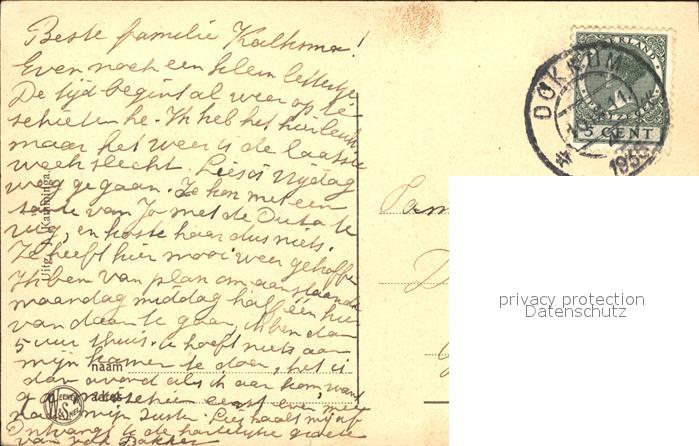 Beste familie Kalksma!
Even noch een klein lettertje
De tijd begint al weer op te
schieten he. Ik heb het hier leuk
maar het weer is de laatste
week slecht. Lies is vrijdag
weg gegaan. Ze kon met een
tante van Jo met de Auto te
rug, en koste haar dus niets.
Ze heeft hier mooi weer gehaffen
Ik ben van plan om aanstaande
maandag middag half één hier
van daan te gaan, Ik ben dan
5 uur thuis. U hoeft niets aan
mijn kamer te doen, het is
dan avond als ik aan kom, want
ga misschien eerst even met
naar mijn zuster. Lies haalt mij af
Ontvangt U de hartelijke groeten
van Bakker
Uitg. Kamminga.
naam
adres
WEENENK & SNEL
DOKKUM
1935
NEDERLAND
5 CENT
Fam
privacy protection
Datenschutz